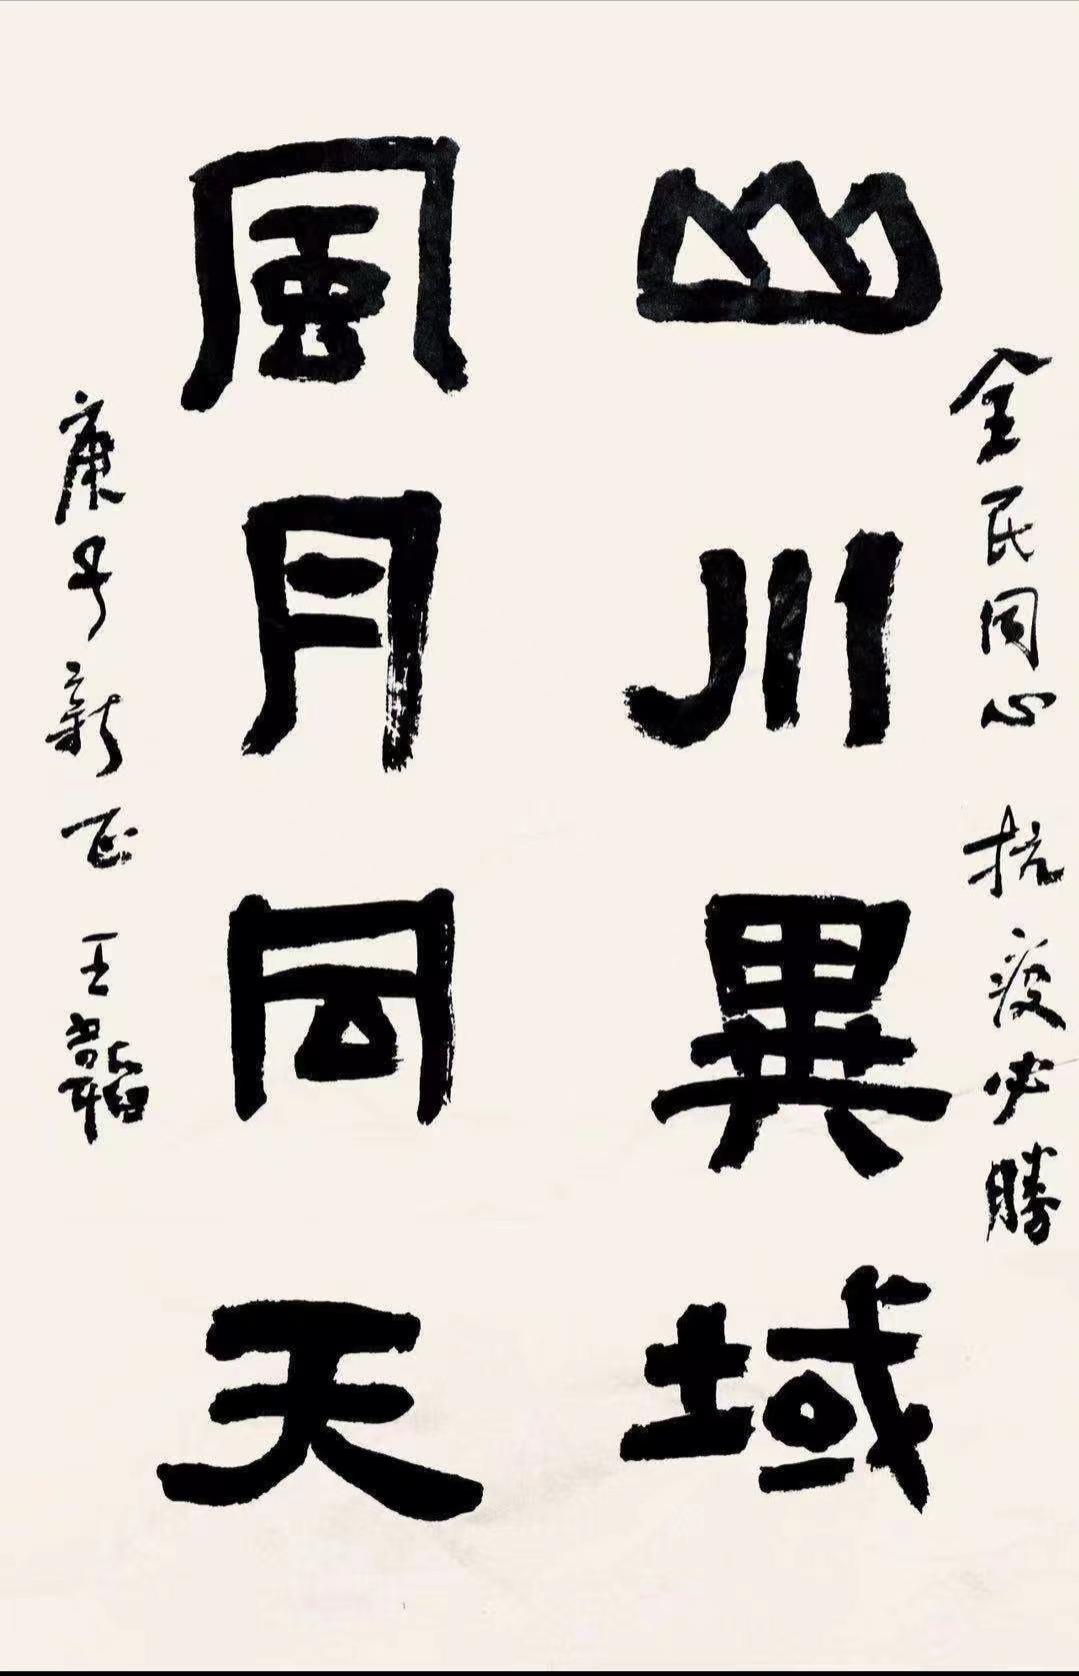 全民同心 抗疫必勝
山川異域
風月同天
庚子新正 王